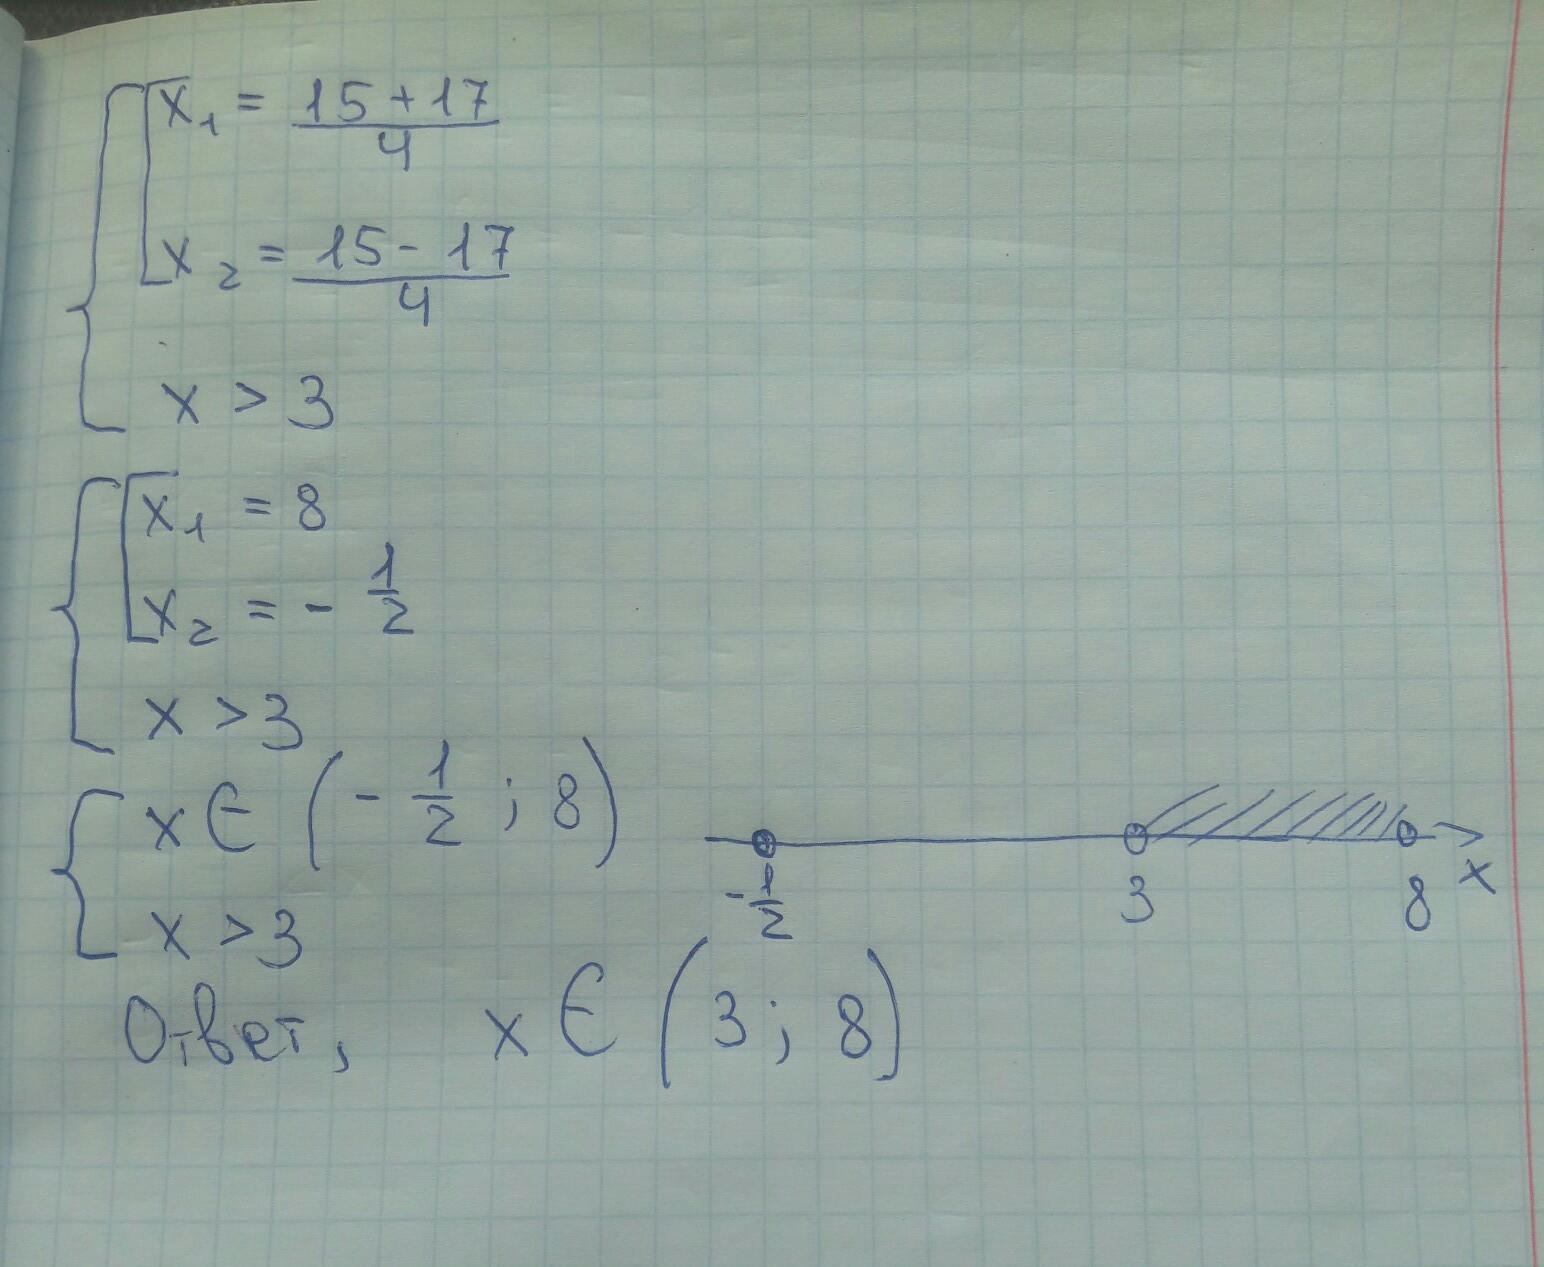 x₁ = (15 + 17)/4
x₂ = (15 - 17)/4
x > 3
x₁ = 8
x₂ = - 1/2
x > 3
x ∈ (- 1/2 ; 8)
x > 3
-1/2 3 8 x
Ответ, x ∈ (3 ; 8)